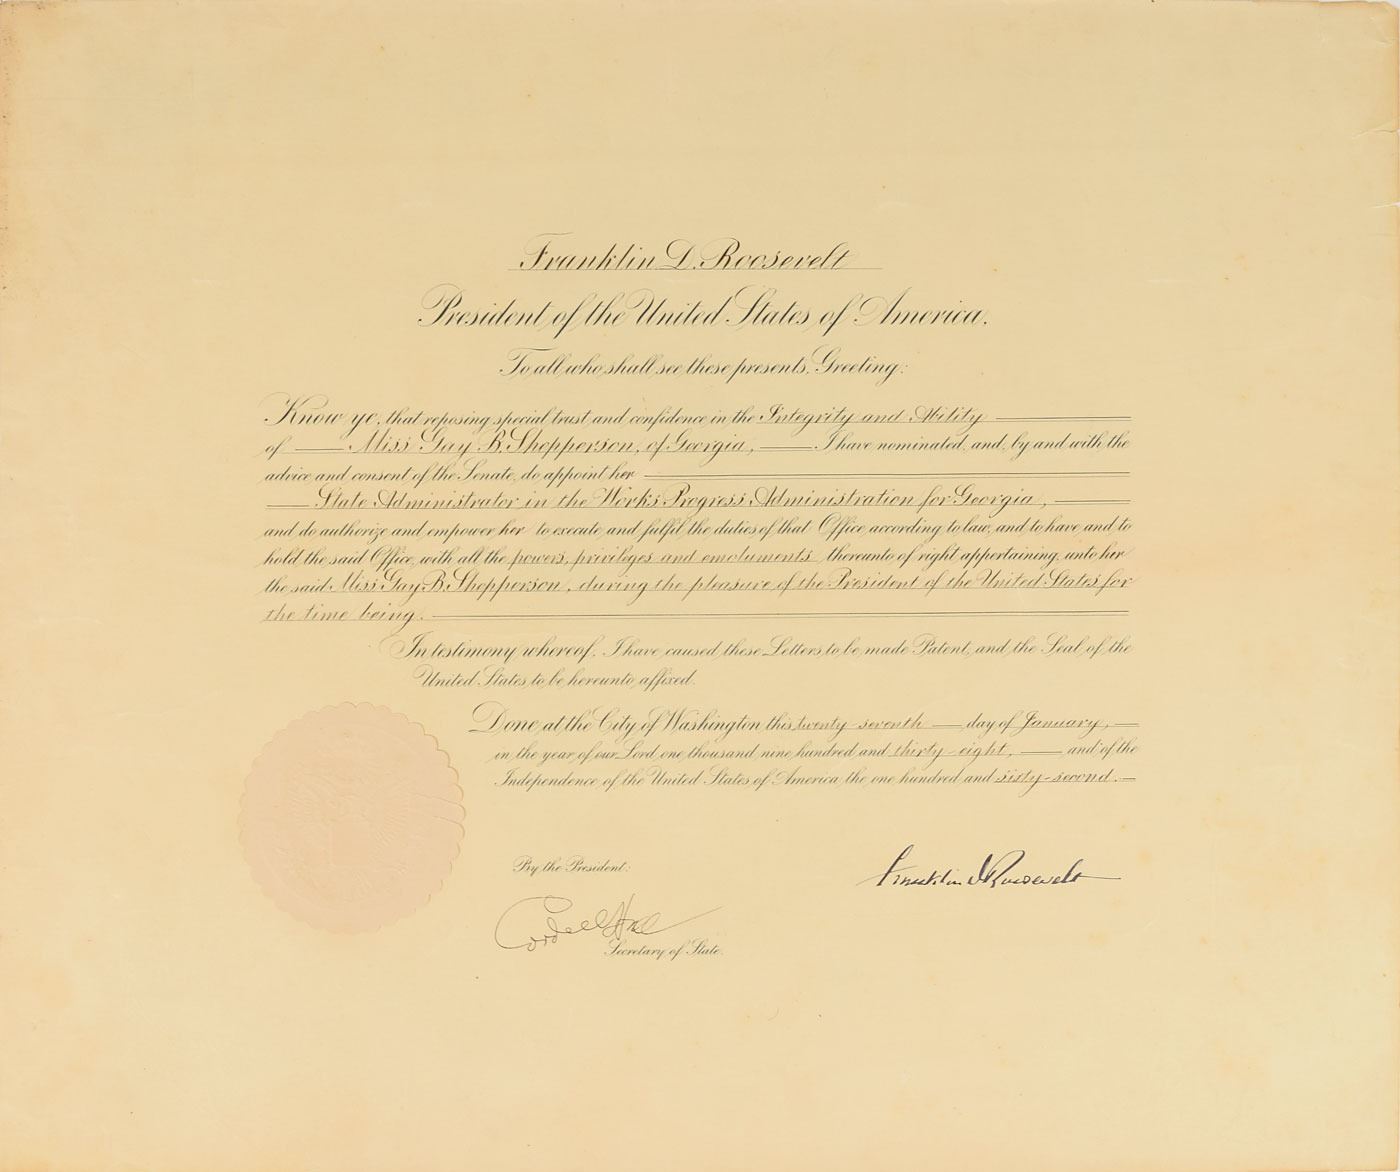 Franklin D. Roosevelt
President of the United States of America.
To all who shall see these presents, Greeting:
Know ye, that reposing special trust and confidence in the Integrity and Ability
of Miss Gay B. Shepperson, of Georgia, I have nominated, and, by and with the
advice and consent of the Senate, do appoint her
State Administrator in the Works Progress Administration for Georgia,
and do authorize and empower her to execute and fulfil the duties of that Office according to law, and to have and to
hold the said Office, with all the powers, privileges and emoluments thereunto of right appertaining, unto her
the said Miss Gay B. Shepperson, during the pleasure of the President of the United States for
the time being.
In testimony whereof, I have caused these Letters to be made Patent, and the Seal of the
United States to be hereunto affixed.
Done at the City of Washington this twenty-seventh day of January,
in the year of our Lord one thousand nine hundred and thirty-eight, and of the
Independence of the United States of America the one hundred and sixty-second.
By the President:
Franklin D Roosevelt
Cordell Hull
Secretary of State.